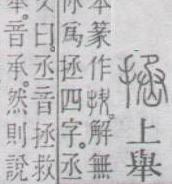 上舉
本篆作 解無
爲拯四字。丞
文曰。丞音拯救
音承。然則說